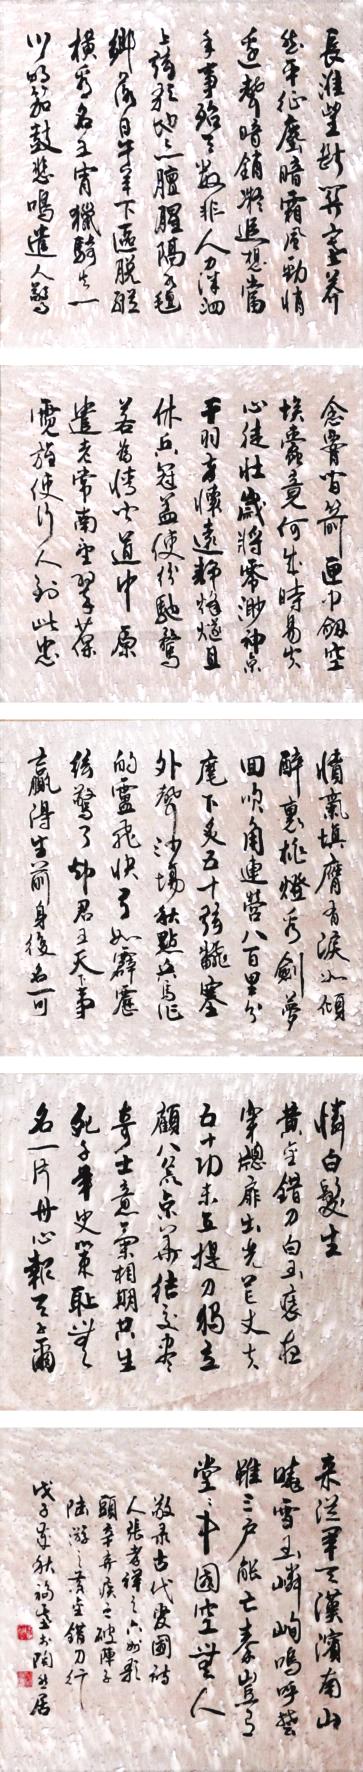 長淮望斷關塞莽
然平征塵暗霜風勁悄
邊聲暗銷凝追想當
年事殆天數非人力洙泗
上絃歌地亦膻腥隔水氈
鄉落日牛羊下區脱縱
橫看名王宵獵騎火一
川明笳鼓悲鳴遣人驚
念腰間箭匣中劍空
埃蠹竟何成時易失
心徒壯歲將零渺神京
干羽方懷遠靜烽燧且
休兵冠蓋使紛馳騖
若為情聞道中原
遺老常南望翠葆
霓旌使行人到此忠
憤氣填膺有淚如傾
醉裏挑燈看劍夢
回吹角連營八百里分
麾下炙五十弦翻塞
外聲沙場秋點兵馬作
的盧飛快弓如霹靂
弦驚了卻君王天下事
贏得生前身後名可
憐白髮生
黃金錯刀白玉裝夜
穿窗扉出光芒丈夫
五十功未立提刀獨立
顧八荒京華結交盡
奇士意氣相期共生
死千年史策恥無
名一片丹心報天子爾
来從軍天漢濱南山
曉雪玉嶙峋嗚呼楚
雖三户能亡秦豈有
堂堂中國空無人
敬录古代愛國詩
人張孝祥之六州歌
頭辛弃疾之破陣子
陸游之黄金錯刀行
戊子年秋於陶居